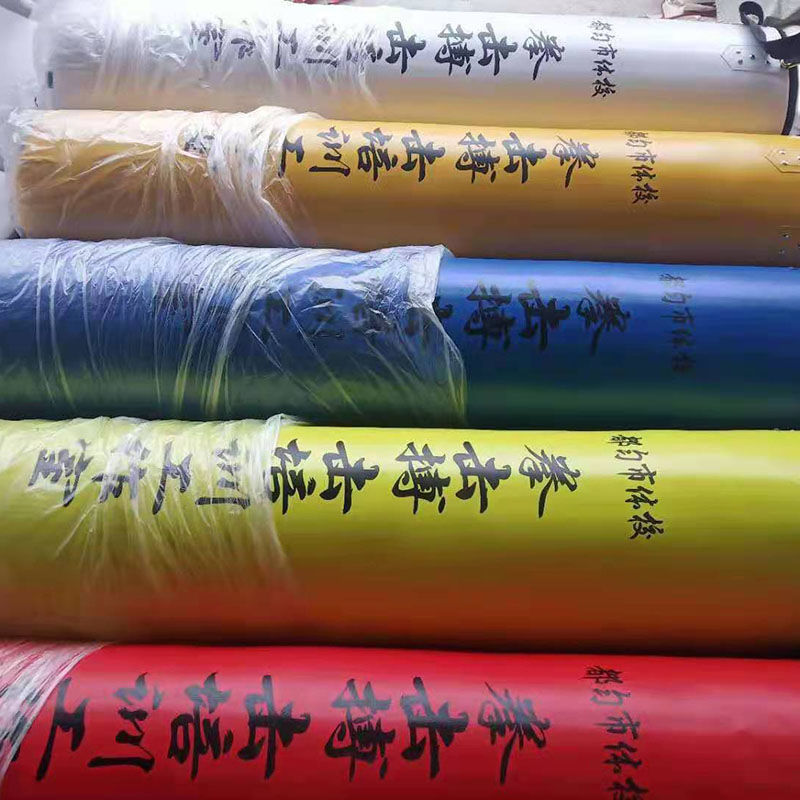 都匀市体校
拳击搏击培训工作室
都匀市体校
拳击搏击培训工
都匀市体校
拳击搏击
都匀市体校
拳击搏击培训工作室
都匀市体校
拳击搏击培训工